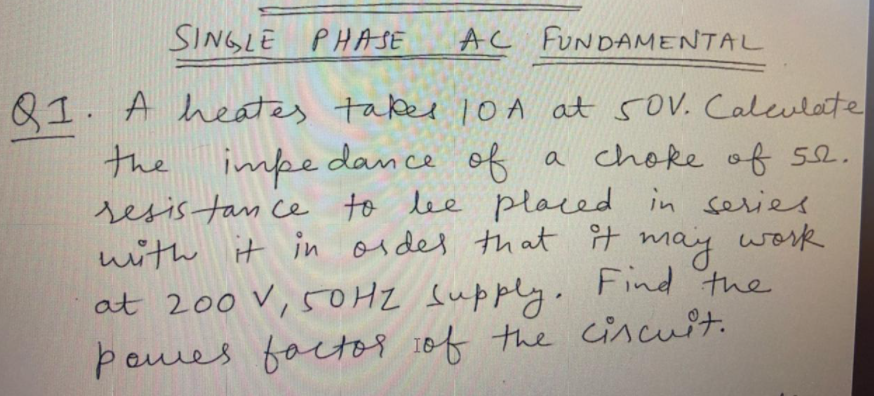 SINGLE PHASE AC FUNDAMENTAL
Q1. A heater takes 10A at 50V. Calculate
the impedance of a choke of 5Ω.
resistance to be placed in series
with it in order that it may work
at 200 V, 50HZ supply. Find the
power factor of the circuit.